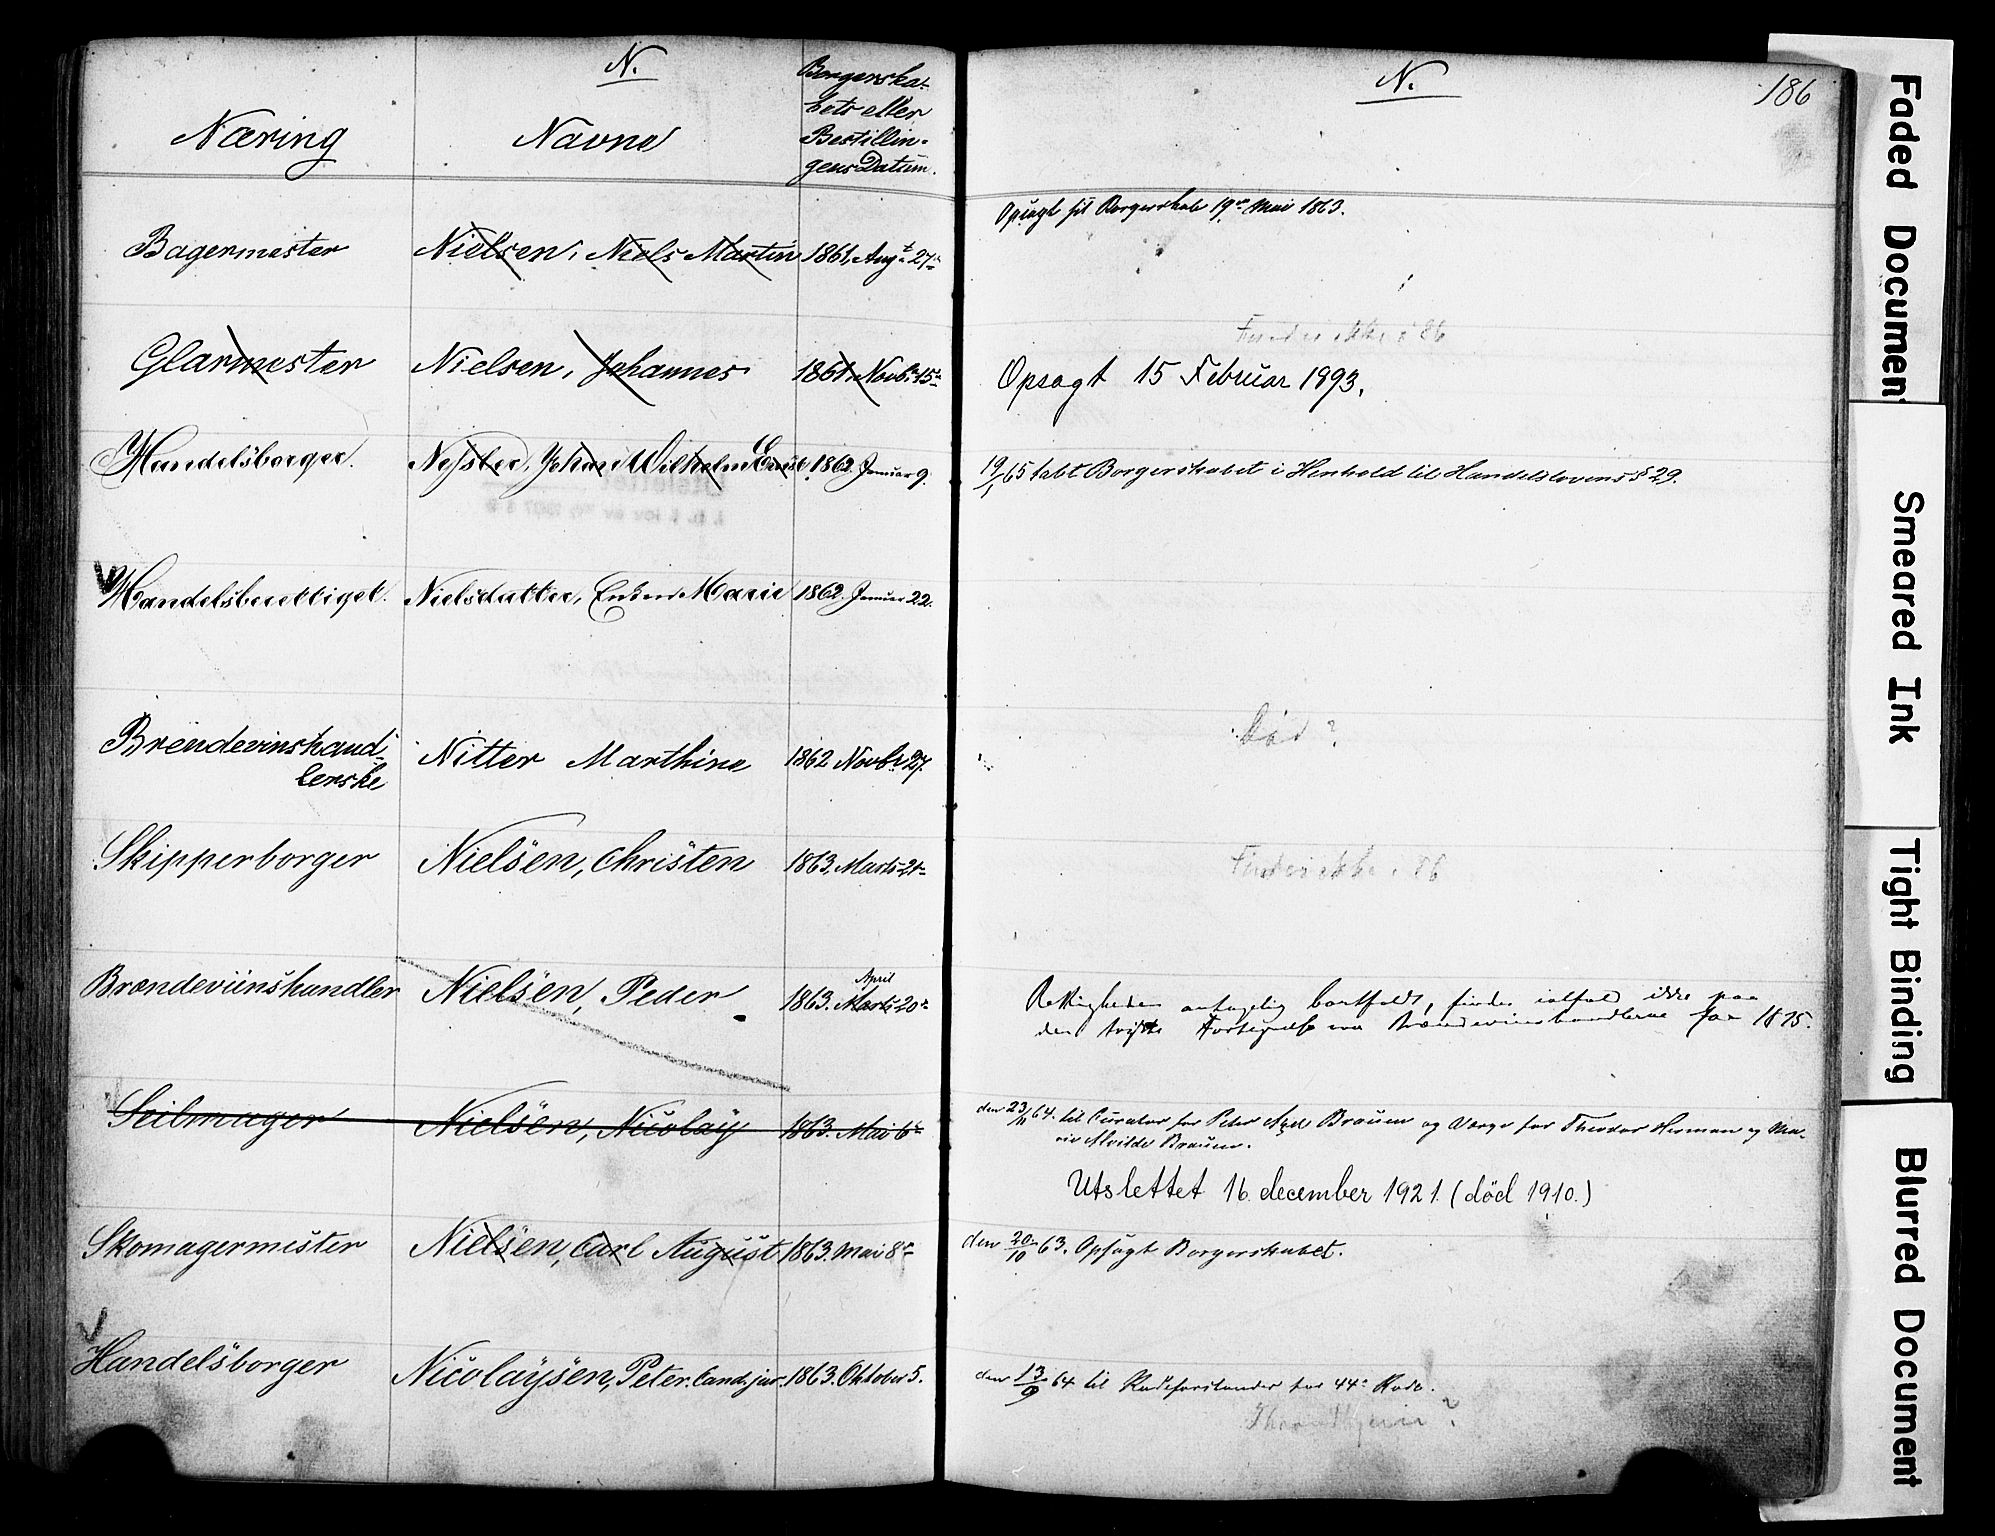 N.
Næring
Navne
Borgerska-
bets eller
Bestillin-
gens Datum.
Bagermester Nielsen, Niels Martin 1861, Augt 27.
Glarmester Nielsen, Johannes 1861. Novbr 15.
Handelsborger. Johan Wilhelm Ernst 1862. Januar 9.
Handelsberettiget. Nielsdatter, Enken Marie 1862. Januar 22.
Brændevinshand-
lerske
Nitter Marthine 1862 Novbr 27.
Skipperborger Nielsen, Christen 1863, Marts 21
Brændeviinshandler Nielsen, Peder 1863. Marts 20
April
Seilmager Nielsen, Nicolay 1863. Mai 6
Skomagermester Nielsen, Carl August 1863. Mai 8
Handelsborger Nicolaysen, Peter. Cand. jur. 1863. Oktober 5.
N.
186
Opsagt sit Borgerskab 19de Mai 1863.
Findes ikke i 86
Opsagt 15 Februar 1893.
19/1 65 tabt Borgerskabet i Henhold til Handelslovens § 29.
Død?
Findes ikke i 86
Rettigheden antagelig bortfaldt, findes ialfald ikke paa
den trykte Fortegnelse over Brændevinshandlerne for 1875.
den 23/11 64. til Curator for Peter Axel Brauen og Værge for Theodor Herman og Ma-
rie Alvilde Brauen.
Utslettet 16. december 1921. (död 1910.)
den 20/10 63. Opsagt Borgerskabet.
den 13/9 64 til Rodeforstander for 44. Rode.
Faded Document
Smeared Ink
Tight Binding
Blurred Document